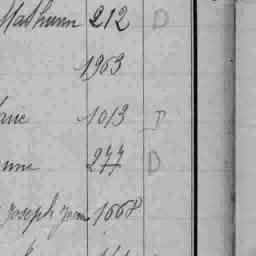 Mathurin 212 D
1963
1013 D
277 D
Joseph Jean 1668